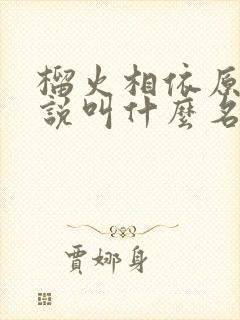 榴火相依原
說叫什麼名
賈娜身